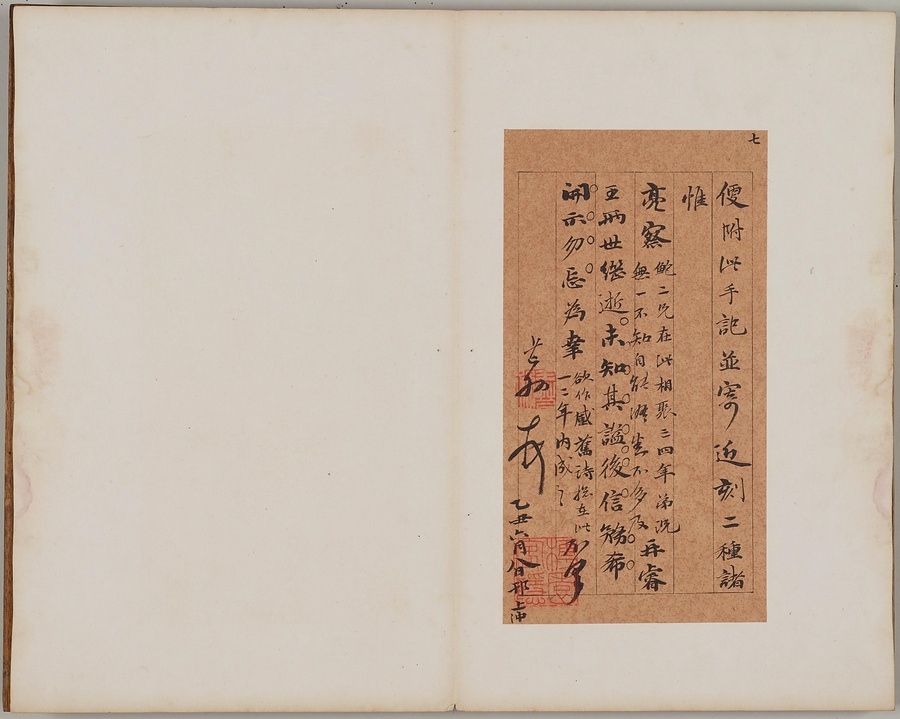 七
便附此手記並寄近刻二種諸
惟
亮察
鮑二兄在此相聚三四年弟況
無一不知自能濳悉不多及
再睿
王兩世繼逝未知其謚後信務希
開示勿忘為幸
欲作感舊詩總在此
一二年內成之
芷林
乙丑六月八日邗上沖